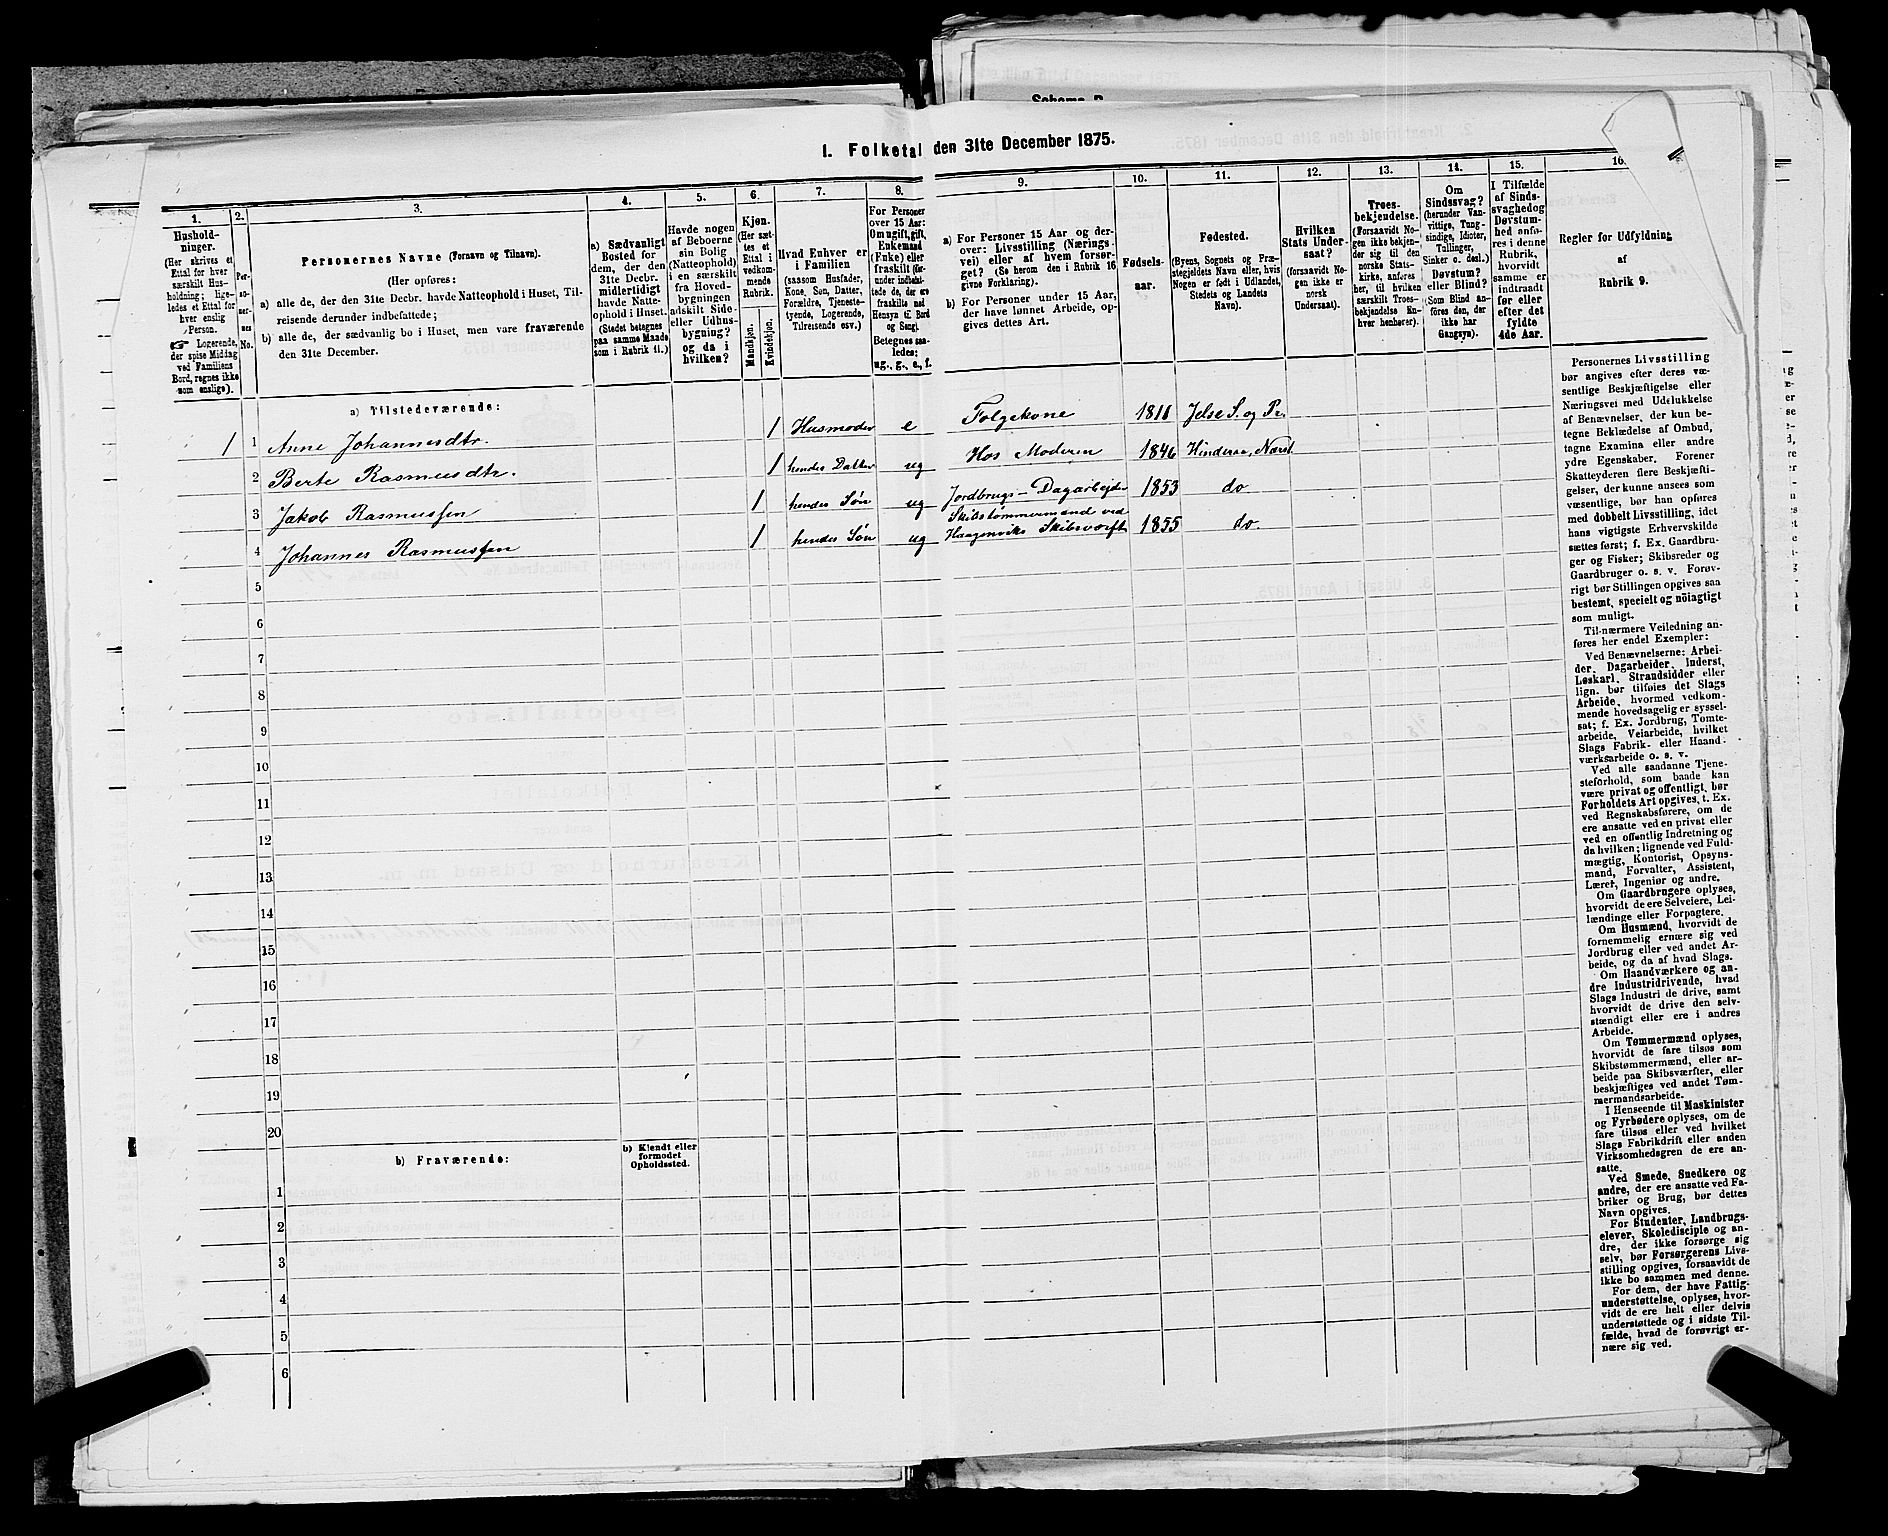 Schema B
1. Folketal den 31te December 1875.
1.
2.
3.
4.
5.
6.
7.
8.
9.
10.
11.
12.
13.
14.
15.
16.
Hushold-
ninger.
(Her skrives et
Ettal for hver
særskilt Hus-
holdning; lige-
ledes et Ettal for
hver enslig
Person.
☞ Logerende,
der spise Middag
ved Familiens
Bord, regnes ikke
som enslige).
Per-
so-
ner-
nes
No.
Personernes Navne (Fornavn og Tilnavn).
(Her opføres:
a) alle de, der den 31te Decbr. havde Natteophold i Huset, Til-
reisende derunder indbefattede;
b) alle de, der sædvanlig bo i Huset, men vare fraværende
den 31te December.
a) Sædvanligt
Bosted for
dem, der den
31te Decbr.
midlertidigt
havde Natte-
ophold i Huset.
(Stedet betegnes
paa samme Maade
som i Rubrik 11.)
Havde nogen
af Beboerne
sin Bolig
(Natteophold)
i en særskilt
fra Hoved-
bygningen
adskilt Side-
eller Udhus-
bygning?
og da i
hvilken?
Kjøn.
(Her sæt-
tes et
Ettal i
vedkom-
mende
Rubrik.
Mandkjøn.
Kvindekjøn.
Hvad Enhver er
i Familien
(saasom Husfader,
Kone, Søn, Datter,
Forældre, Tjeneste-
tyende, Logerende,
Tilreisende osv.)
For Personer
over 15 Aar:
Om ugift, gift,
Enkemand
(Enke) eller
fraskilt (her-
under indbefat-
tede de, der ere
fraskilte med
Hensyn til Bord
og Seng).
Betegnes saa-
ledes:
ug., g., e., f.
a) For Personer 15 Aar og der-
over: Livsstilling (Nærings-
vei) eller af hvem forsør-
get? (Se herom den i Rubrik 16
givne Forklaring).
b) For Personer under 15 Aar,
der have lønnet Arbeide, op-
gives dettes Art.
Fødsels-
aar.
Fødested.
(Byens, Sognets og Præ-
stegjeldets Navn eller, hvis
Nogen er født i Udlandet,
Stedets og Landets
Navn).
Hvilken
Stats Under-
saat?
(foruaavidt No-
gen ikke er
norsk
Undersaat).
Troes-
bekjendelse.
(Forsaavidt No-
gen ikke bekjen-
der sig til den
norske Stats-
kirke, anføres
her, til hvilken
særskilt Troes-
bekjendelse En-
hver henhører).
Om
Sindssvag?
(herunder Van-
vittige, Tung-
sindige, Idioter,
Tullinger,
Sinker o. desl.)
Døvstum?
eller Blind?
(Som Blind an-
føres den, der
ikke har
Gangsyn).
I Tilfælde
af Sinds-
svaghed og
Døvstum-
hed anfø-
res i denne
Rubrik,
hvorvidt
samme er
indtraadt
før eller
efter det
fyldte
4de Aar.
Regler for Udfyldning
af
Rubrik 9.
a) Tilstedeværende:
1 1 Anne Johannesdtr. 1 Husmoder e Folgekone 1811 Jelse S. og Pr.
2 Berte Rasmusdtr. 1 hendes Datter ug Hos Moderen 1846 Hinderaa, Nærst.
3 Jakob Rasmussen 1 hendes Søn ug Jordbrugs-Dagarbejder 1853 do
4 Johannes Rasmussen 1 hendes Søn ug Skibstømmermand ved
Haagenviks Skibsværft 1855 do.
5
6
7
8
9
10
11
12
13
14
15
16
17
18
19
20
b) Fraværende:
b) Kjendt eller
formodet
Opholdssted.
1
2
3
4
5
6
Personernes Livsstilling
bør angives efter deres væ-
sentlige Beskjæftigelse eller
Næringsvei med Udelukkelse
af Benævnelser, der kun be-
tegne Beklædelse af Ombud,
tagne Examina eller andre
ydre Egenskaber. Forener
Skatteyderen flere Beskjæfti-
gelser, der kunne ansees som
væsentlige, bør han opføres
med dobbelt Livsstilling, idet
hans vigtigste Erhvervskilde
sættes først; f. Ex. Gaardbru-
ger og Fisker; Skibsreder og
Gaardbruger o. s. v. Forøv-
rigt bør Stillingen opgives saa
bestemt, specielt og nöiagtigt
som muligt.
Til nærmere Veiledning an-
føres her endel Exempler:
Ved Benævnelserne: Arbei-
der, Dagarbeider, Inderst,
Løskarl, Strandsidder eller
lign. bør tilføies det Slags
Arbeide, hvormed vedkom-
mende hovedsagelig er syssel-
sat; f. Ex. Jordbrug, Tomte-
arbeide, Veiarbeide, hvilket
Slags Fabrik- eller Haand-
værksarbeide o. s. v.
Ved alle saadanne Tjene-
steforhold, som baade kan
være privat og offentligt, bør
Forholdets Art opgives, t. Ex.
ved Regnskabsførere, om de
ere ansatte ved en privat eller
ved en offentlig Indretning og
da hvilken; lignende ved Fuld-
mægtig, Kontorist, Opsyns-
mand, Forvalter, Assistent,
Læret, Ingeniør og andre.
Om Gaardbrugere oplyses,
hvorvidt de ere Selveiere, Lei-
lændinge eller Forpagtere.
Om Husmænd, hvorvidt de
fornemmelig ernære sig ved
Jordbrug eller ved andet Ar-
beide, og da af hvad Slags.
Om Haandværkere og an-
dre Industridrivende, hvad
Slags Industri de drive, samt
hvorvidt de drive den selv-
stændigt eller ere i andres
Arbeide.
Om Tømmermænd oplyses,
hvorvidt de fare tilsøs som
Skibstømmermænd, eller ar-
beide paa Skibsværfter, eller
beskjæftiges ved andet Tøm-
mermandsarbeide.
I Henseende til Maskinister
og Fyrbødere oplyses, om de
fare tilsøs eller ved hvilket
Slags Fabrikdrift eller anden
Virksomhedsgren de ere an-
satte.
Ved Smede, Snedkere og
andre, der ere ansatte ved Fa-
briker og Brug, bør dettes
Navn opgives.
For Studenter, Landbrugs-
elever, Skoledisciple og an-
dre, der ikke forsørge sig
selv, bør Forsørgerens Livs-
stilling opgives, forsaavidt de
ikke bo sammen med denne.
For dem, der have Fattig-
understøttelse, oplyses, hvor-
vidt de ere helt eller delvis
understøttede og i sidste Til-
fælde, hvad de forøvrigt er-
nære sig ved.